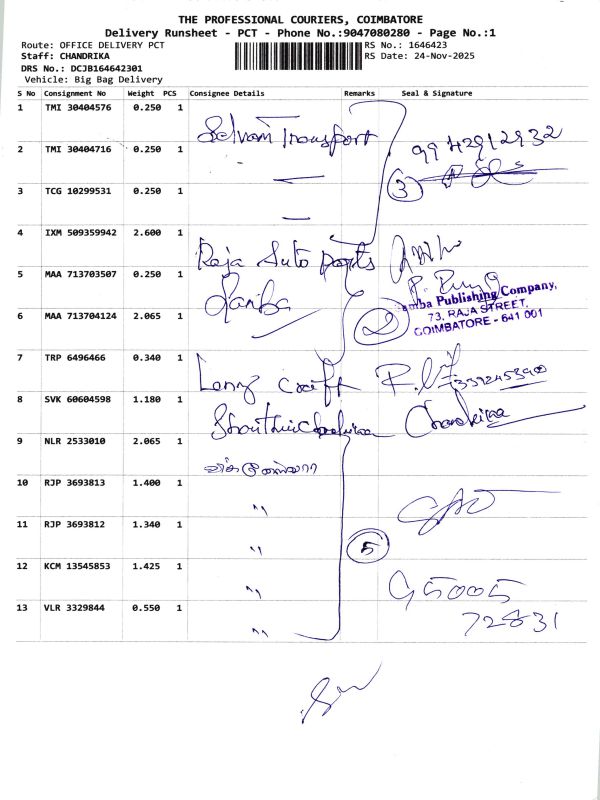 THE PROFESSIONAL COURIERS, COIMBATORE
Delivery Runsheet - PCT - Phone No.:9047080280 - Page No.:1
Route: OFFICE DELIVERY PCT RS No.: 1646423
Staff: CHANDRIKA RS Date: 24-Nov-2025
DRS No.: DCJB164642301
Vehicle: Big Bag Delivery
S No Consignment No Weight PCS Consignee Details Remarks Seal & Signature
1 TMI 30404576 0.250 1 Selvam Transport 9942912932
2 TMI 30404716 0.250 1 3
3 TCG 10299531 0.250 1
4 IXM 509359942 2.600 1 Raja Auto parts
5 MAA 713703507 0.250 1 Samba
Samba Publishing Company,
73, RAJA STREET,
COIMBATORE - 641 001
6 MAA 713704124 2.065 1 2
7 TRP 6496466 0.340 1
8 SVK 60604598 1.180 1 Chandrika
9 NLR 2533010 2.065 1
10 RJP 3693813 1.400 1 "
11 RJP 3693812 1.340 1 " 5
12 KCM 13545853 1.425 1 " 95005
13 VLR 3329844 0.550 1 " 72831